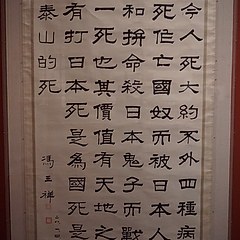 今人死大約不外四種病
死作亡國奴而被日本人
和拚命殺日本鬼子而戰
一死也其價值有天地之
有打日本死是為國死是
泰山的死
馮玉祥